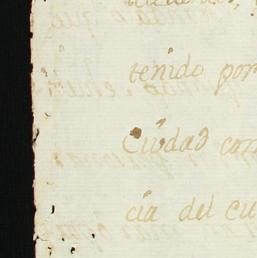 tenido por
Ciudad com
cia del cu